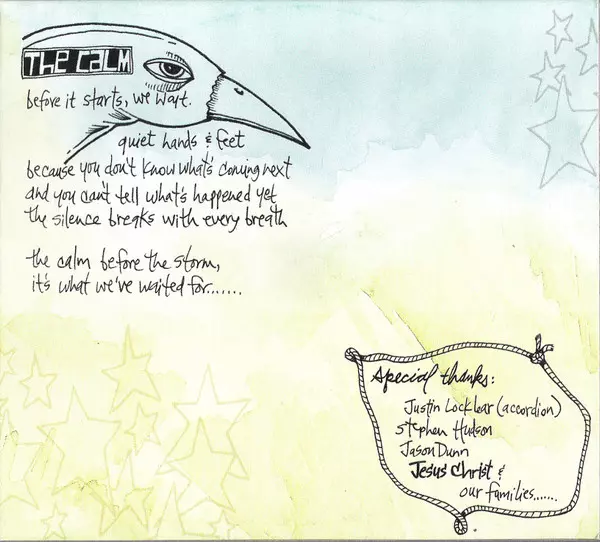 THE CALM
before it starts, we wait.
quiet hands & feet
because you don't know what's coming next
and you can't tell what's happened yet
the silence breaks with every breath
the calm before the storm,
it's what we've waited for.......
Special thanks:
Justin Locklear (accordion)
Stephen Hudson
Jason Dunn
Jesus Christ &
our families.......